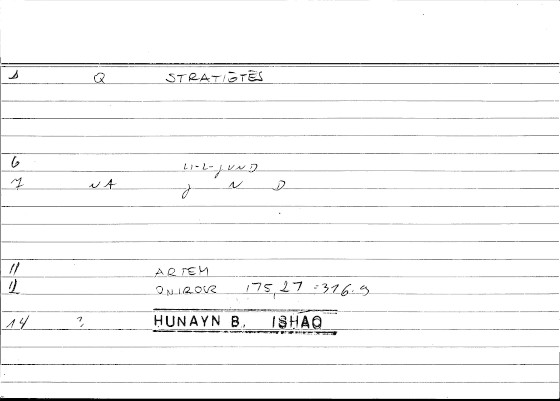 1 Q STRATIŌTĒS
6 LI-L-JUND
7 NA J N D
11 ARTEM
12 ONIROCR 175,27 = 316.9
14 ? HUNAYN B. ISHAQ